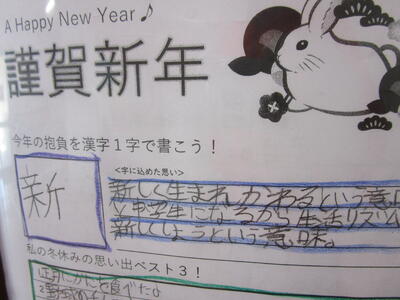 A Happy New Year♪
謹賀新年
今年の抱負を漢字1字で書こう！
<字に込めた思い>
新
新しく生まれかわるという意
中学生になるから生活リズ
新しくしようという意味。
私の冬休みの思い出ベスト3！